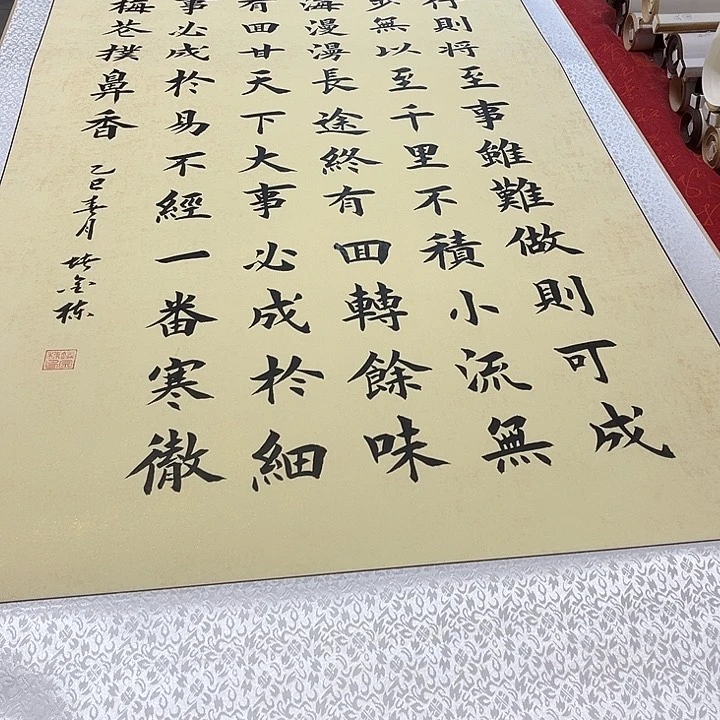 行則將至事雖難做則可成
無以至千里不積小流無
海漫漫長途終有囬轉餘味
有囬甘天下大事必成於細
事必成於易不經一番寒徹
梅花撲鼻香
乙巳春月 金栋